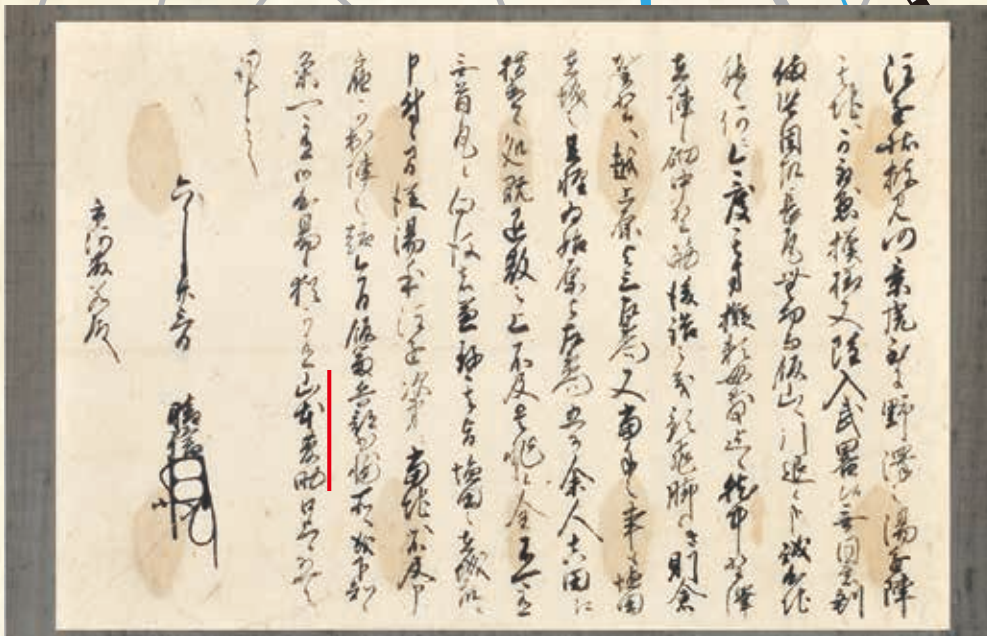 注進状披見仍景虎至于野澤之湯進陣
其地へ可取懸模様又雖入武略候無同意剰
備堅固故長尾無功而飯山へ引退候哉誠心地
能候何ニ今度其方擬頼母敷迄候就中野澤
在陣之砌中野筋後詰之義預飛脚候き則倉
賀野へ越上原与三左衛門尉又当手之事も塩田
在城之足軽為始原与左衛門尉五百余人真田江
指遣候処既退散之上不及是非候全不可有
無首尾候向後者兼存其旨塩田之在城衆へ
申付候間従湯本注進次第ニ当地へ不及申
届可出陣之趣今日飯富兵部少輔所へ成下知
候条可有御心易候猶可有山本菅助口上候恐々
謹言
六月廿三日
晴信
市河藤若殿